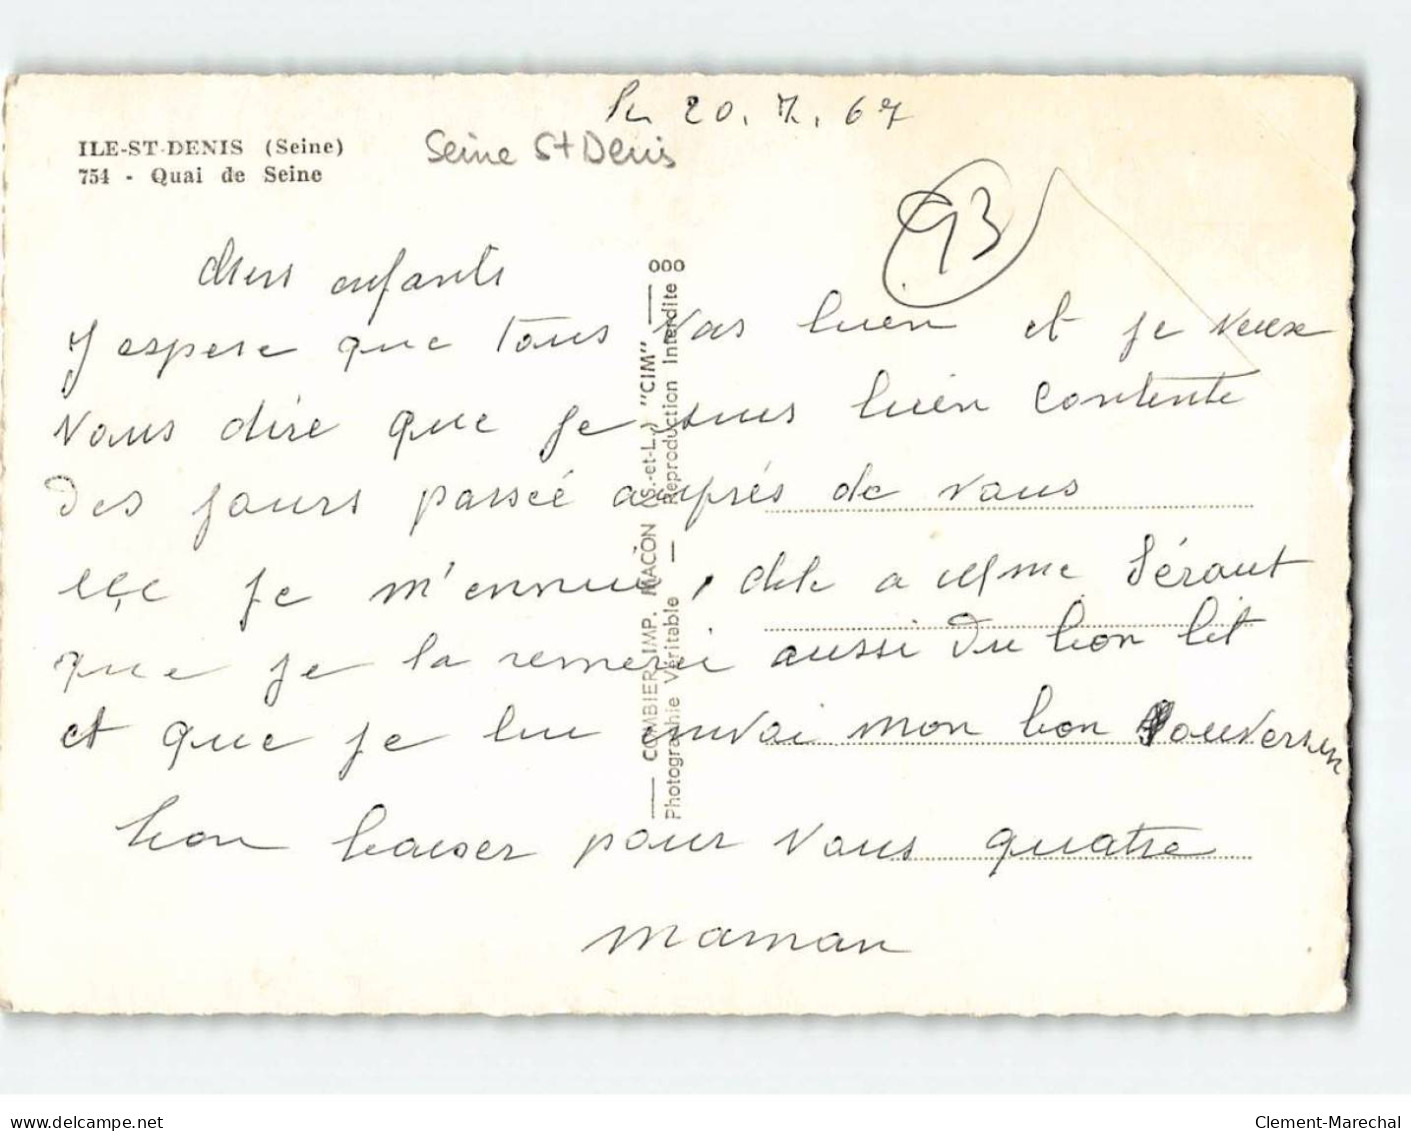 20.7.67
ILE-ST-DENIS (Seine)
754 - Quai de Seine
Seine St Denis
93
chers enfants
J espere que tous vas bien et je veux
vous dire que je suis bien contente
des jours passeé auprés de vous
içe je m'ennui, dite a Mme
que je la remerci aussi du bon lit
et que je lui envoi mon bon souvernir
bon baiser pour vous quatre
maman
000
COMBIER IMP. MACON (S.-et-L.) "CIM"
Photographie Véritable — Reproduction Interdite
www.delcampe.net
Clement-Marechal